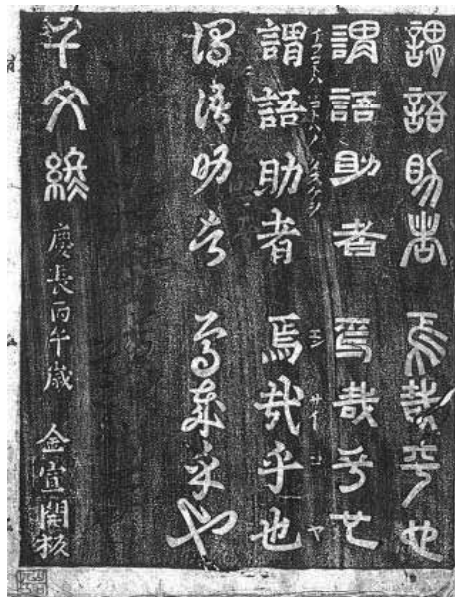 謂語助者 焉哉乎也
謂語助者 焉哉乎也
エン サイ コ ヤ
謂語助者 焉哉乎也
謂語助者 焉哉乎也
千文終 慶長丙午歳 金宣開板